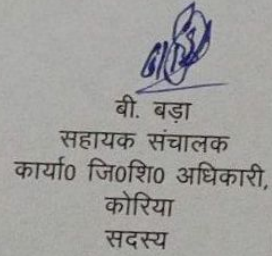 बी. बड़ा
सहायक संचालक
कार्या0 जि0शि0 अधिकारी,
कोरिया
सदस्य